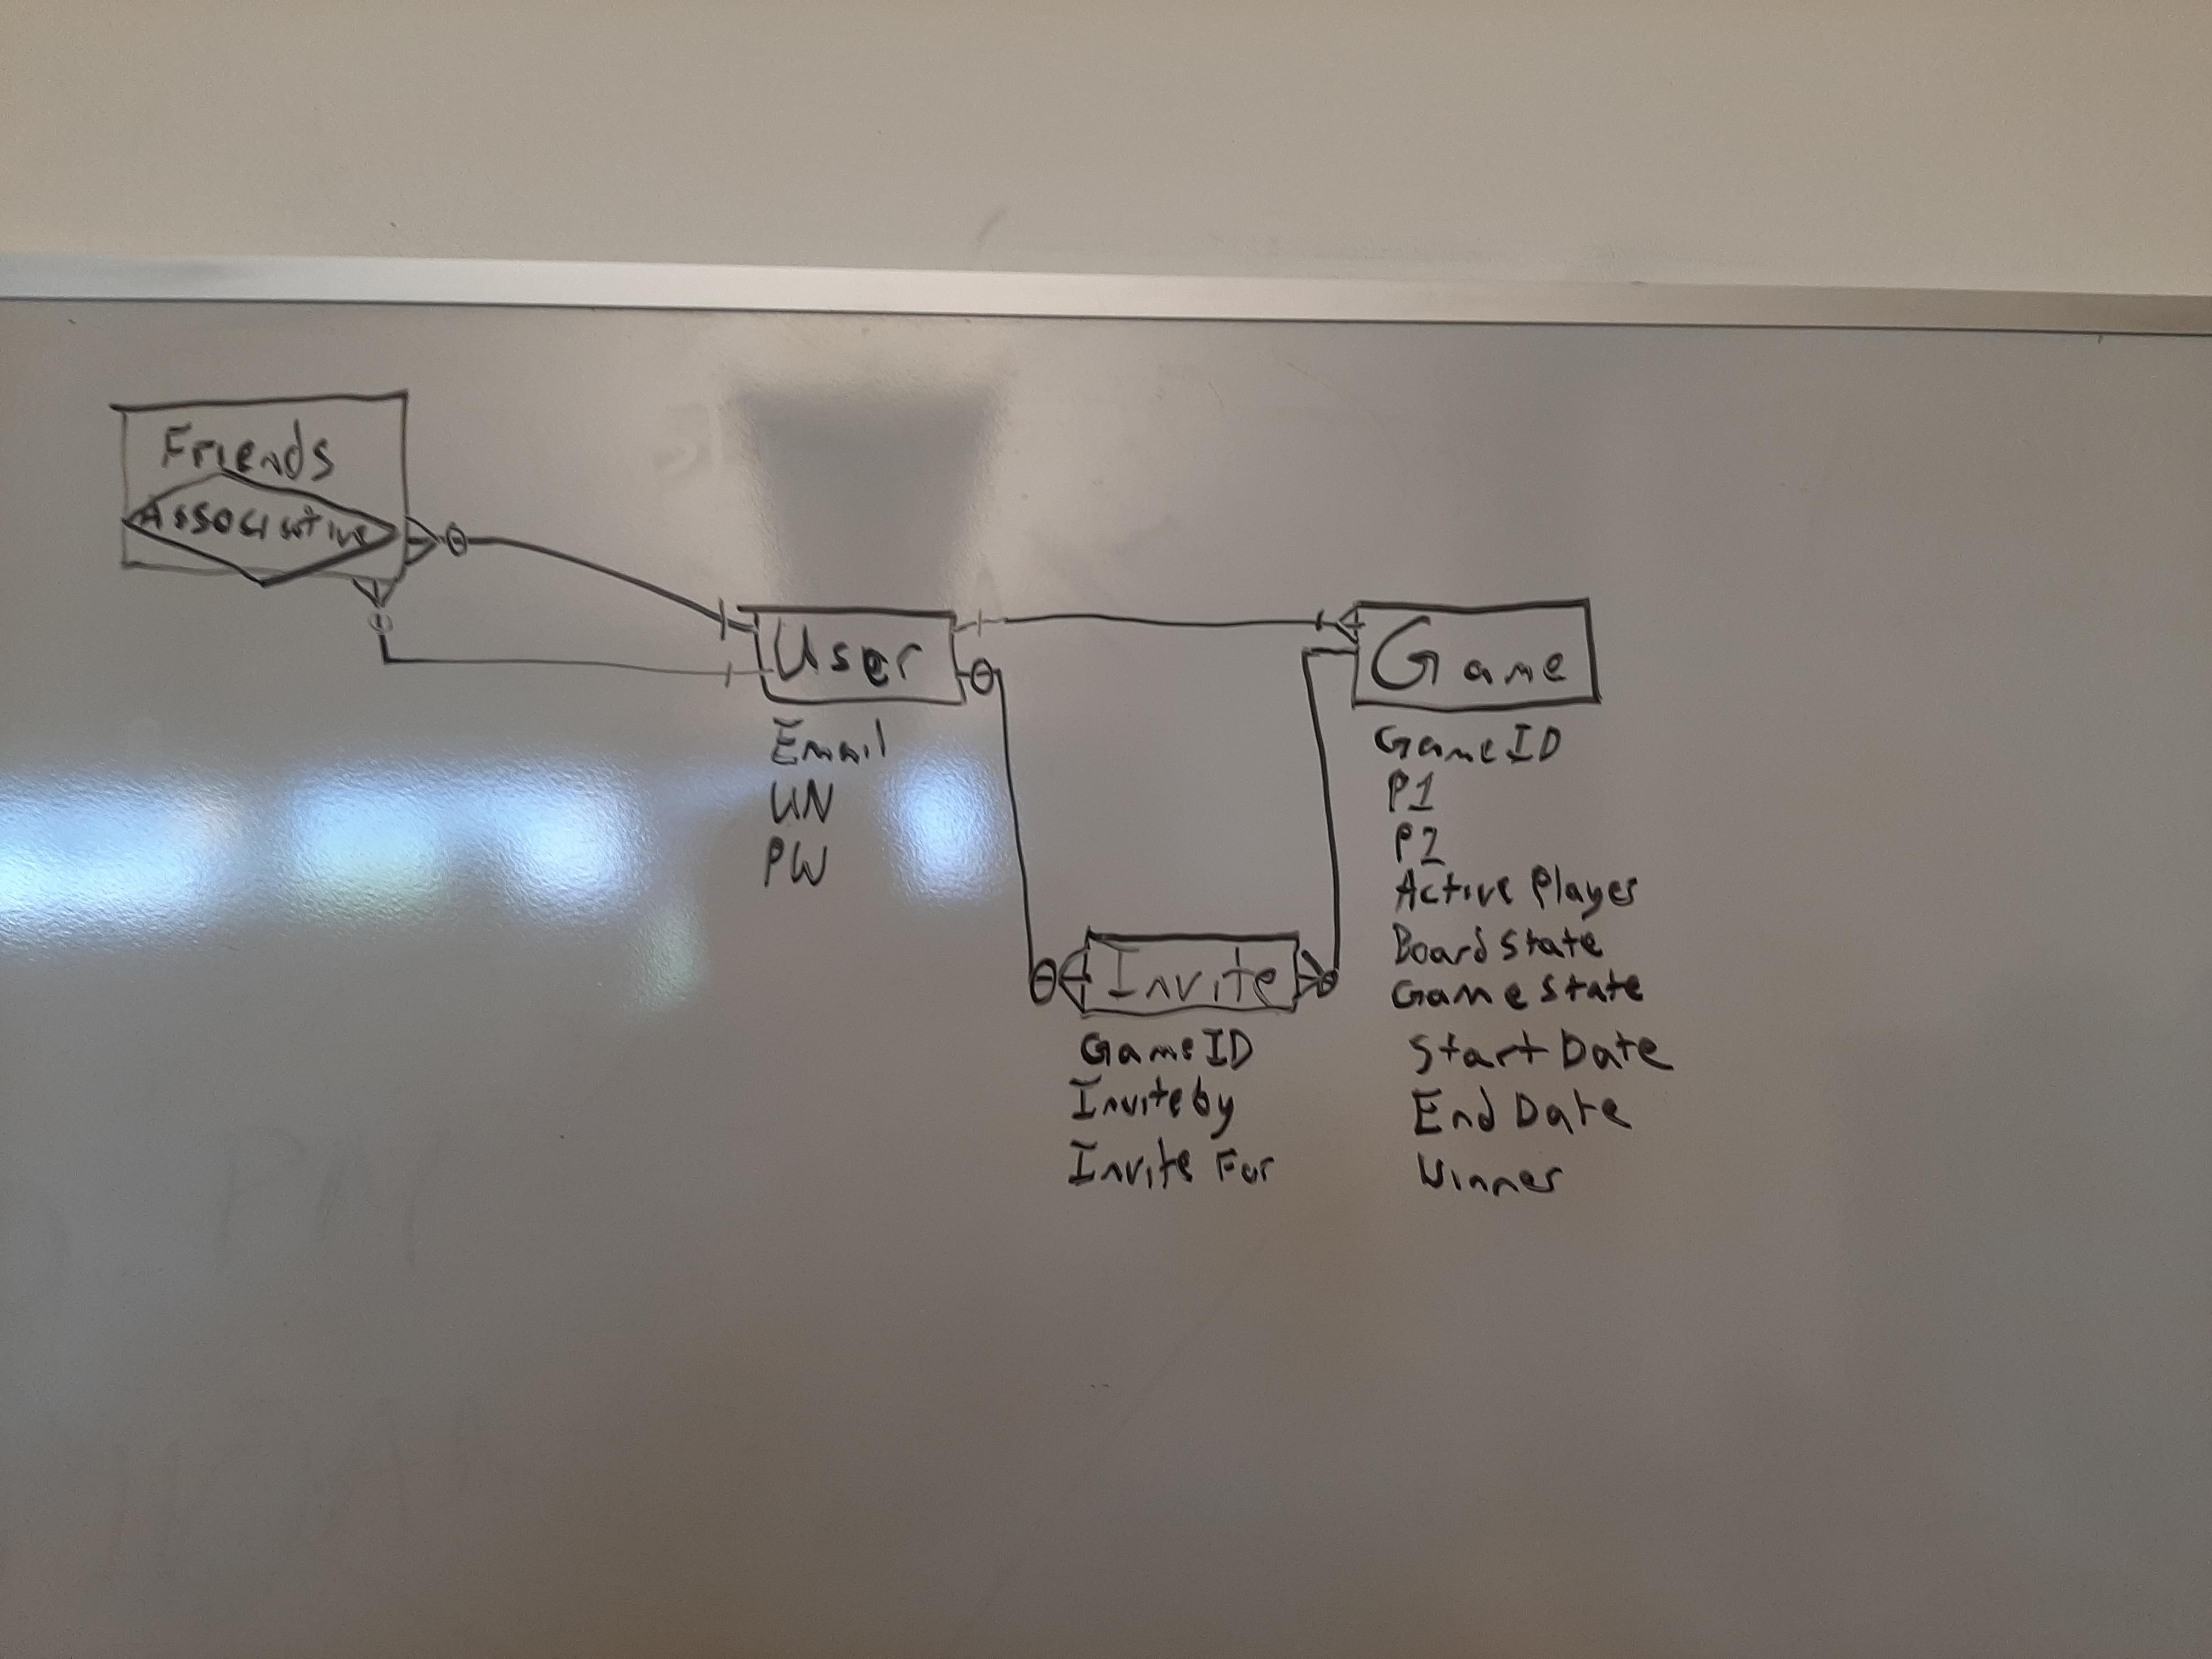 Friends
Associative
User
Email
UN
PW
Game
GameID
P1
P2
Active Player
Board State
Game State
Start Date
End Date
Winner
Invite
GameID
Invite by
Invite For
PM